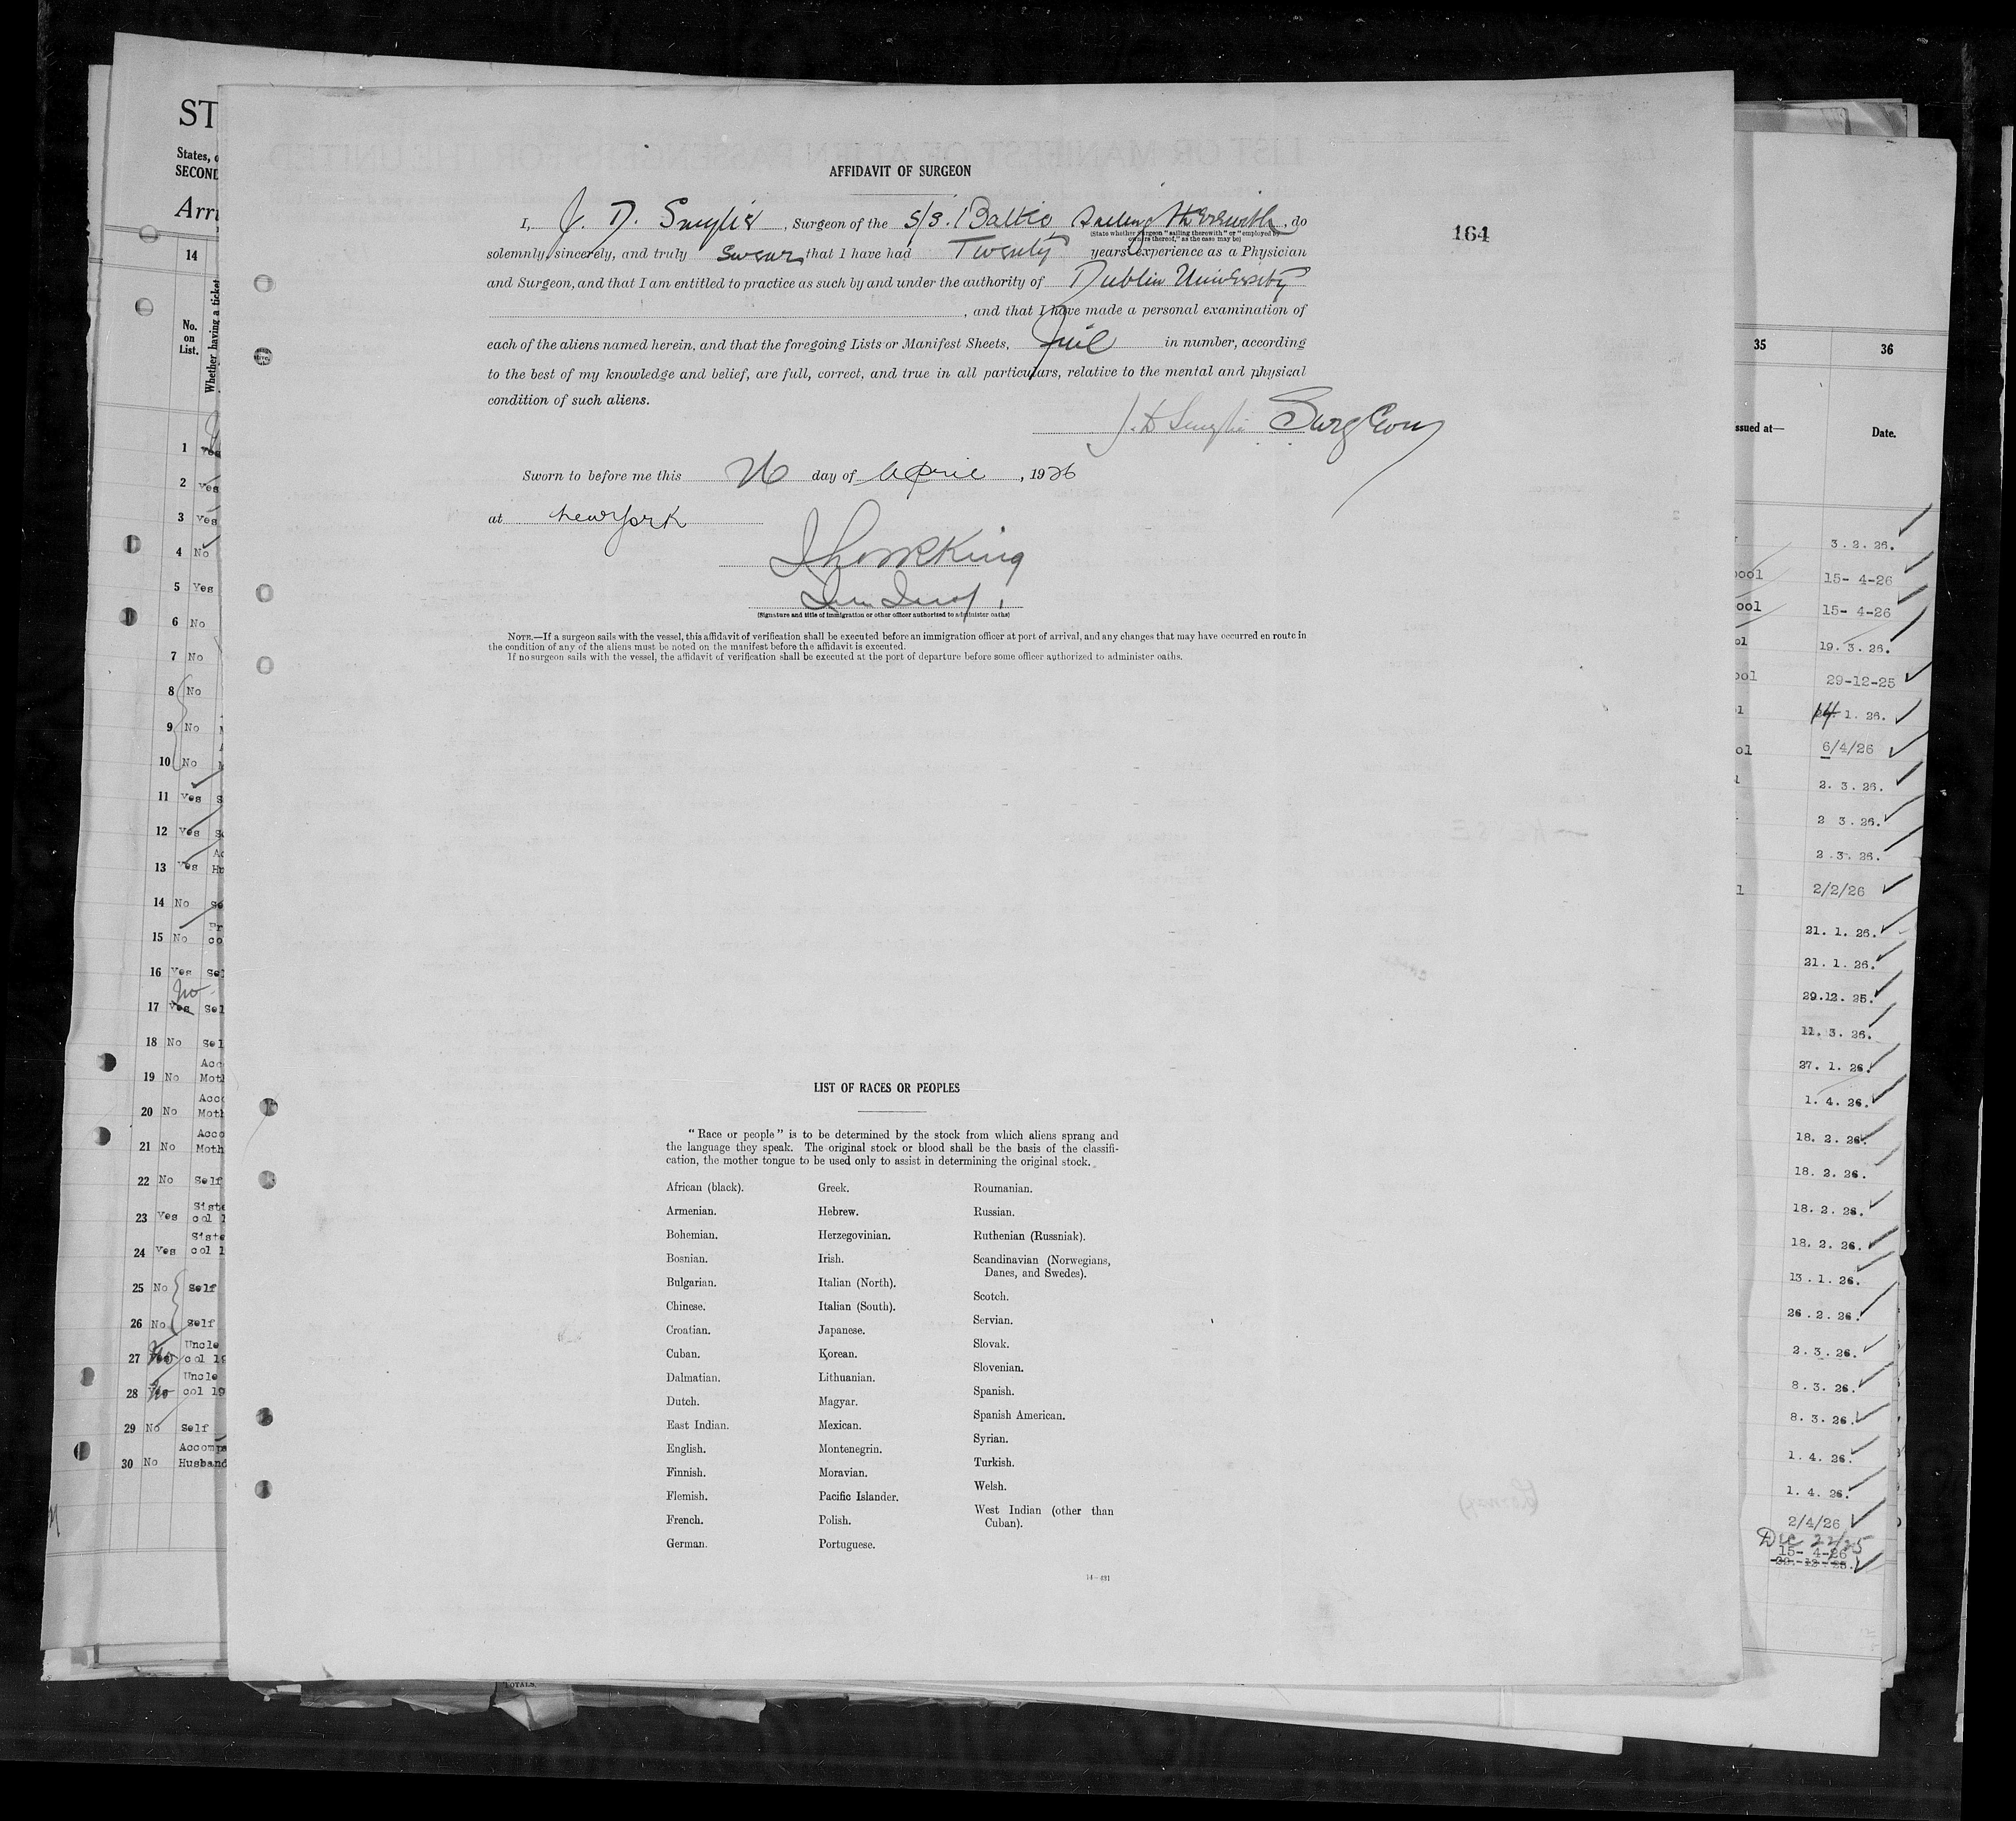 AFFIDAVIT OF SURGEON
I, J. D. Smylie, Surgeon of the S/S. Baltic, Sailing therewith, do
(State whether surgeon "sailing therewith" or "employed by
owners thereof," as the case may be)
164
solemnly, sincerely, and truly swear that I have had Twenty years' experience as a Physician
and Surgeon, and that I am entitled to practice as such by and under the authority of Dublin University
, and that I have made a personal examination of
each of the aliens named herein, and that the foregoing Lists or Manifest Sheets, in number, according
to the best of my knowledge and belief, are full, correct, and true in all particulars, relative to the mental and physical
condition of such aliens.
J. D. Smylie Surgeon
Sworn to before me this 26 day of April, 1926
at New York
King
(Signature and title of immigration or other officer authorized to administer oaths)
NOTE.—If a surgeon sails with the vessel, this affidavit of verification shall be executed before an immigration officer at port of arrival, and any changes that may have occurred en route in
the condition of any of the aliens must be noted on the manifest before the affidavit is executed.
If no surgeon sails with the vessel, the affidavit of verification shall be executed at the port of departure before some officer authorized to administer oaths.
LIST OF RACES OR PEOPLES
"Race or people" is to be determined by the stock from which aliens sprang and
the language they speak. The original stock or blood shall be the basis of the classifi-
cation, the mother tongue to be used only to assist in determining the original stock.
African (black).
Armenian.
Bohemian.
Bosnian.
Bulgarian.
Chinese.
Croatian.
Cuban.
Dalmatian.
Dutch.
East Indian.
English.
Finnish.
Flemish.
French.
German.
Greek.
Hebrew.
Herzegovinian.
Irish.
Italian (North).
Italian (South).
Japanese.
Korean.
Lithuanian.
Magyar.
Mexican.
Montenegrin.
Moravian.
Pacific Islander.
Polish.
Portuguese.
Roumanian.
Russian.
Ruthenian (Russniak).
Scandinavian (Norwegians,
Danes, and Swedes).
Scotch.
Servian.
Slovak.
Slovenian.
Spanish.
Spanish American.
Syrian.
Turkish.
Welsh.
West Indian (other than
Cuban).
14—491
ST
States, 
SECOND
Arri
14
No.
on
List.
Whether having a ticket
1 Yes
2 Yes
3 Yes
4 No
5 Yes
6 No
7 No
8 No
9 No
10 No
11 Yes S
12 Yes Se
13 Yes Hu
14 No Se
15 No co
16 Yes Sel
No
17 Yes Sel
18 No Sel
Acc
19 No Moth
Acco
20 No Moth
Acco
21 No Moth
22 No Self
Siste
23 Yes col 1
Siste
24 Yes col 1
25 No Self
26 No Self
Uncle
27 No col 19
Uncle
28 No col 19
29 No Self
Accomp
30 No Husband
TOTALS.
35
36
ssued at—
Date.
3.2.26.
ool 15- 4-26
ool 15- 4-26
ol 19.3.26.
ool 29-12-25
l 14 1.26.
ol 6/4/26
2.3.26.
2 3.26.
2.3.26.
l 2/2/26
21.1.26.
21.1.26.
29.12.25.
11.3.26.
27.1.26.
1.4.26.
18.2.26.
18.2.26.
18.2.26.
18.2.26.
13.1.26.
26.2.26.
2.3.26.
8.3.26.
8.3.26.
1.4.26.
1.4.26.
2/4/26
Dec 22/25
15- 4-26